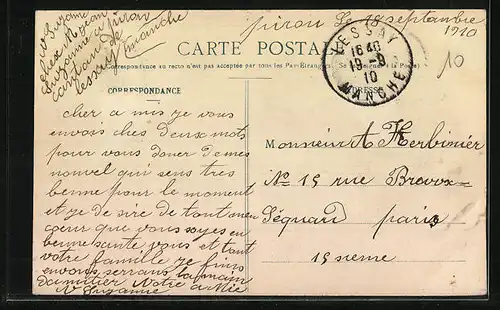 pirou Le 18 septembre
1910
CARTE POSTALE
La Correspondance au recto n'est pas acceptée par tous les Pays Etrangers. Se renseigner à la Poste
CORRESPONDANCE
ADRESSE
LESSAY
16 40
19 -9
10
MANCHE
10
Suzanne
chese
Suzanne a pirou
canton de
Lessay manche
cher a mis ye vous
envois ches deux mots
pour vous doner demes
nouvel qui sens tres
benne pour le moment
et ye de sire de tout mon
cœur que vous soyes en
benne sante vous et tout
votre famille ye finis
envous serrans la main
damitier votre a Mie
Suzanne
Monsieur A Herbinier
No 15 rue Brown
Séquard paris
15 sieme